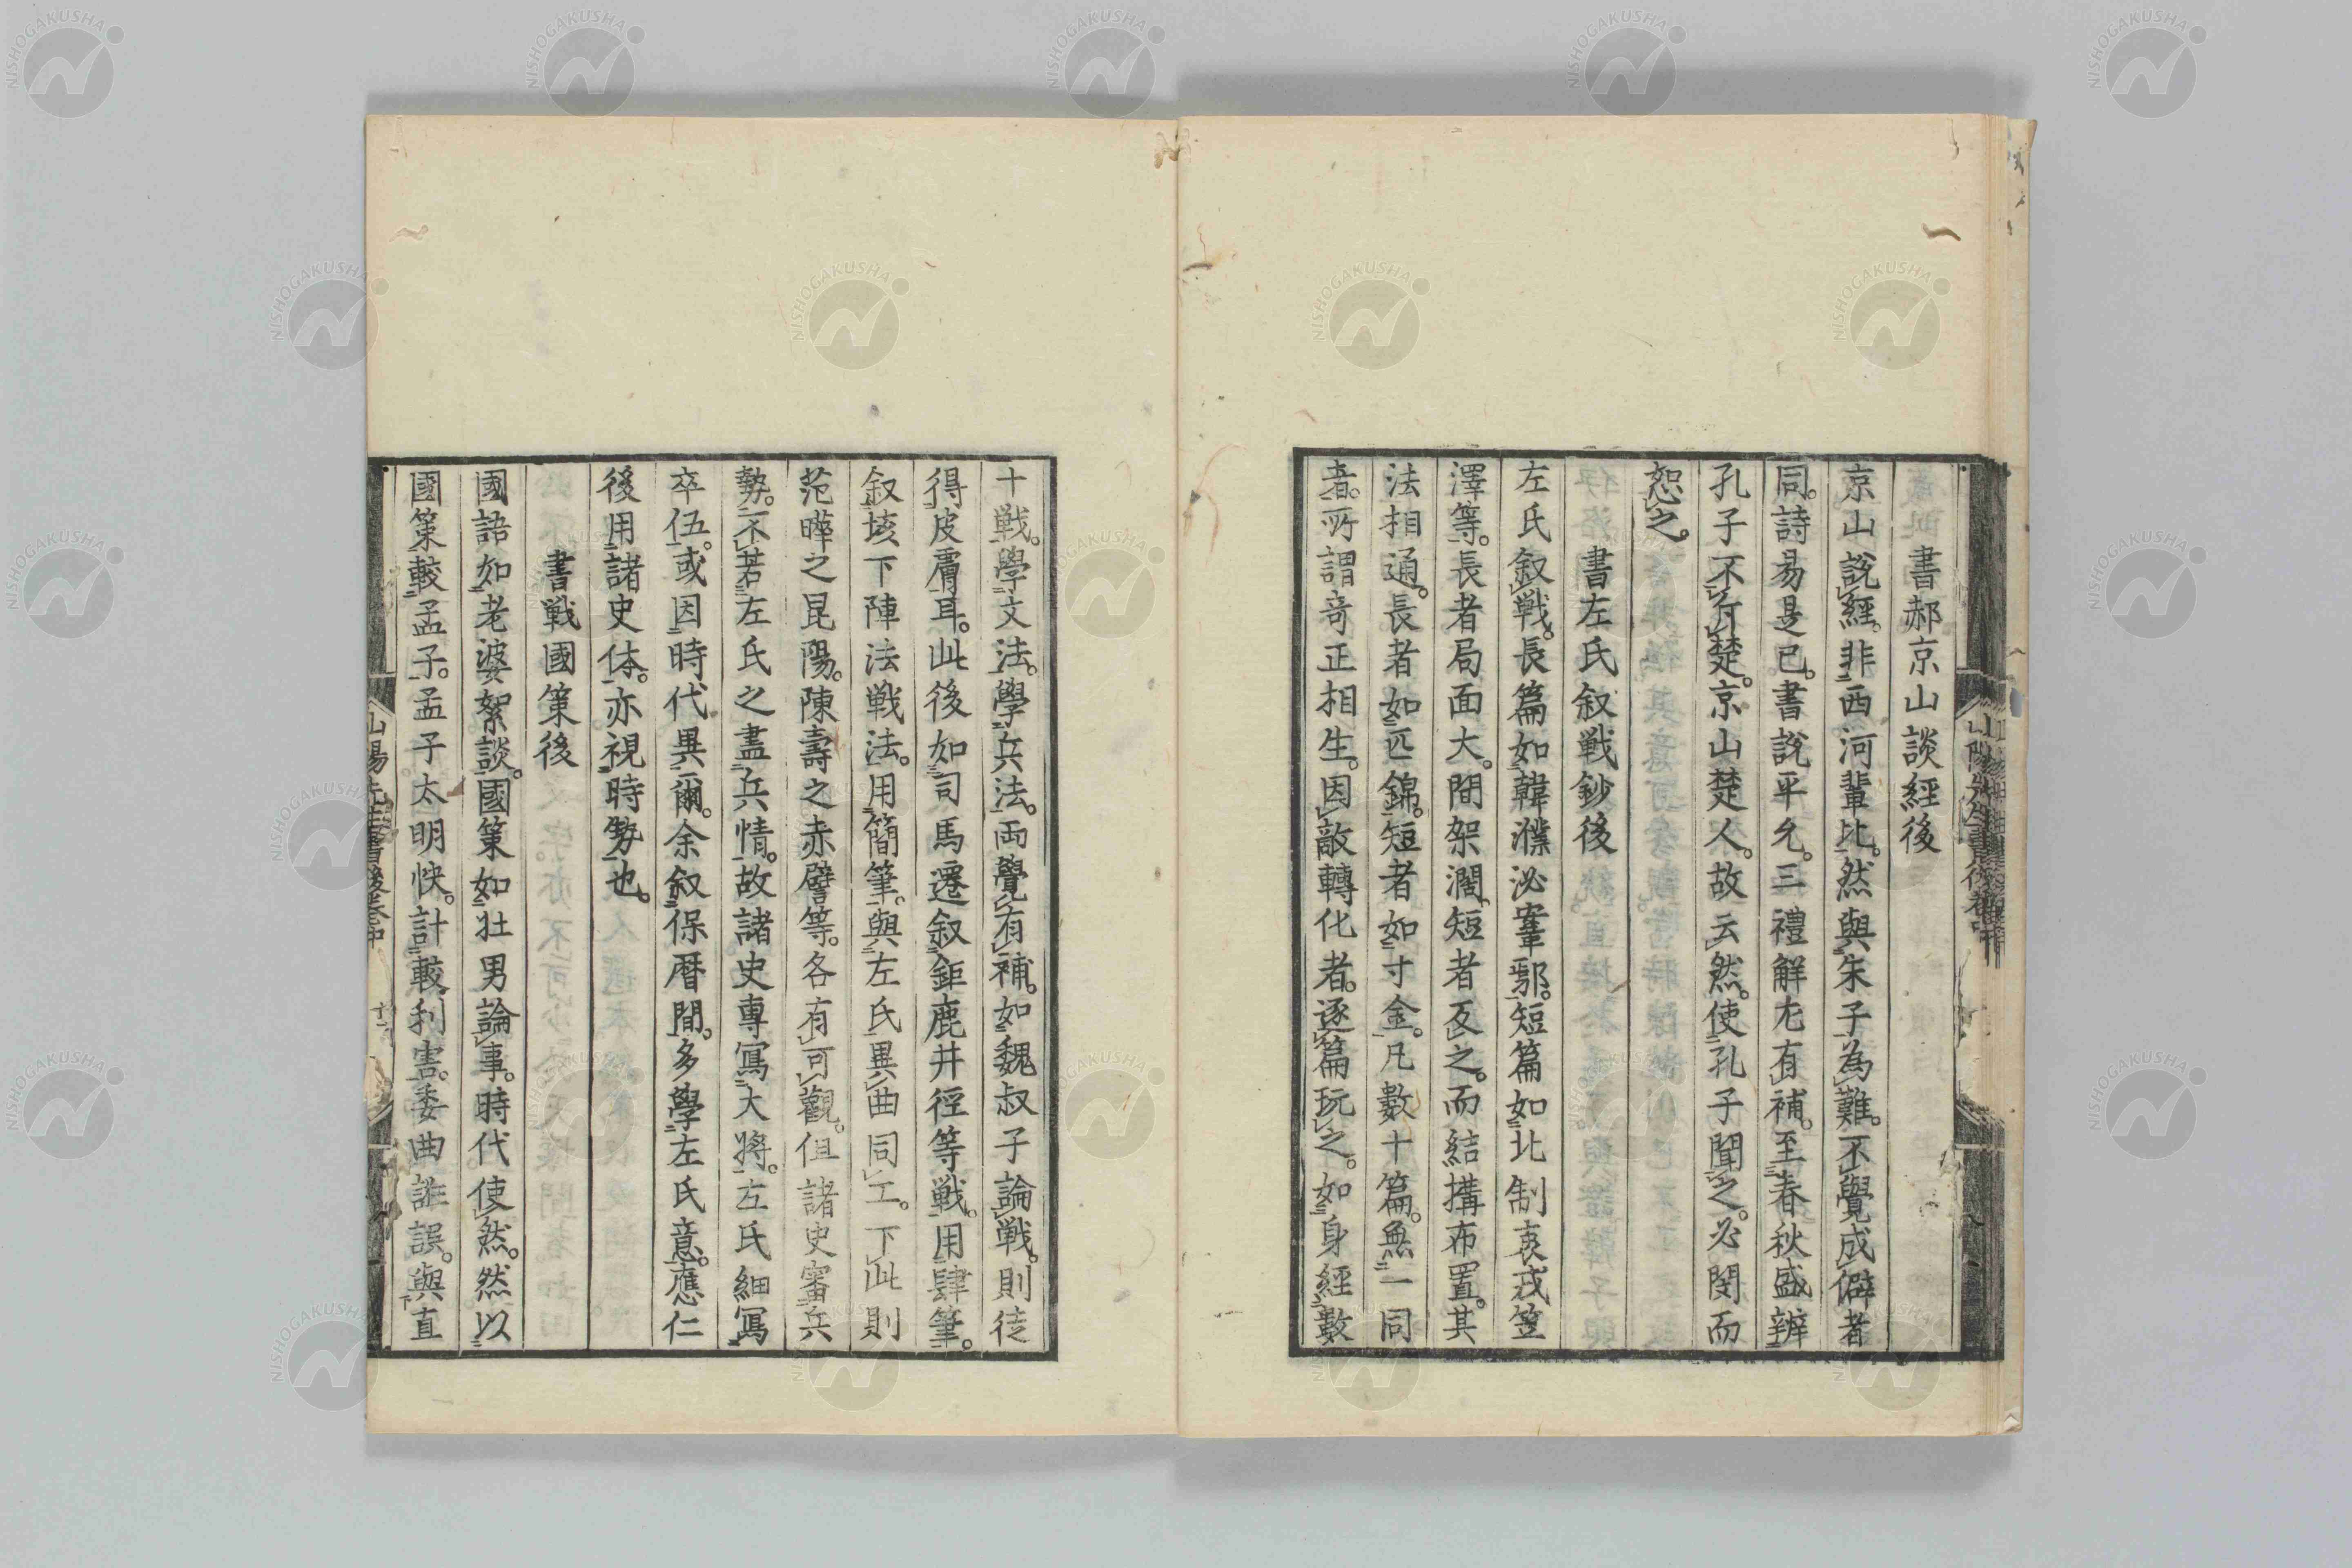 書郝京山談經後
京山說經。非西河輩比。然與朱子為難。不覺成僻者
同。詩易是已。書說平允。三禮解尤有補。至春秋盛辨
孔子不付楚。京山楚人。故云然。使孔子聞之。必閔而
恕之。
書左氏叙戦鈔後
左氏叙戦。長篇如韓濮泌鞌鄢。短篇如北制衷戎笠
澤等。長者局面大。間架濶。短者反之。而結搆布置。其
法相通。長者如匹錦。短者如寸金。凡數十篇。無一同
者。所謂竒正相生。因敵轉化者。逐篇玩之。如身經數
十戦。學文法。學兵法。両覺有補。如魏叔子論戦。則徒
得皮膚耳。此後如司馬遷叙鉅鹿井徑等戦。用肆筆。
叙垓下陣法戦法。用簡筆。與左氏異曲同工。下此則
范曄之昆陽。陳壽之赤壁等。各有可觀。但諸史寫兵
勢。不若左氏之盡兵情。故諸史專寫大將。左氏細寫
卒伍。或因時代異爾。余叙保曆間。多學左氏意。應仁
後用諸史体。亦視時勢也。
書戦國策後
國語如老婆絮談。國策如壮男論事。時代使然。然以
國策較孟子。孟子太明快。計較利害。委曲誰誤。與直
山陽先生書後卷中
NISHOGAKUSHA